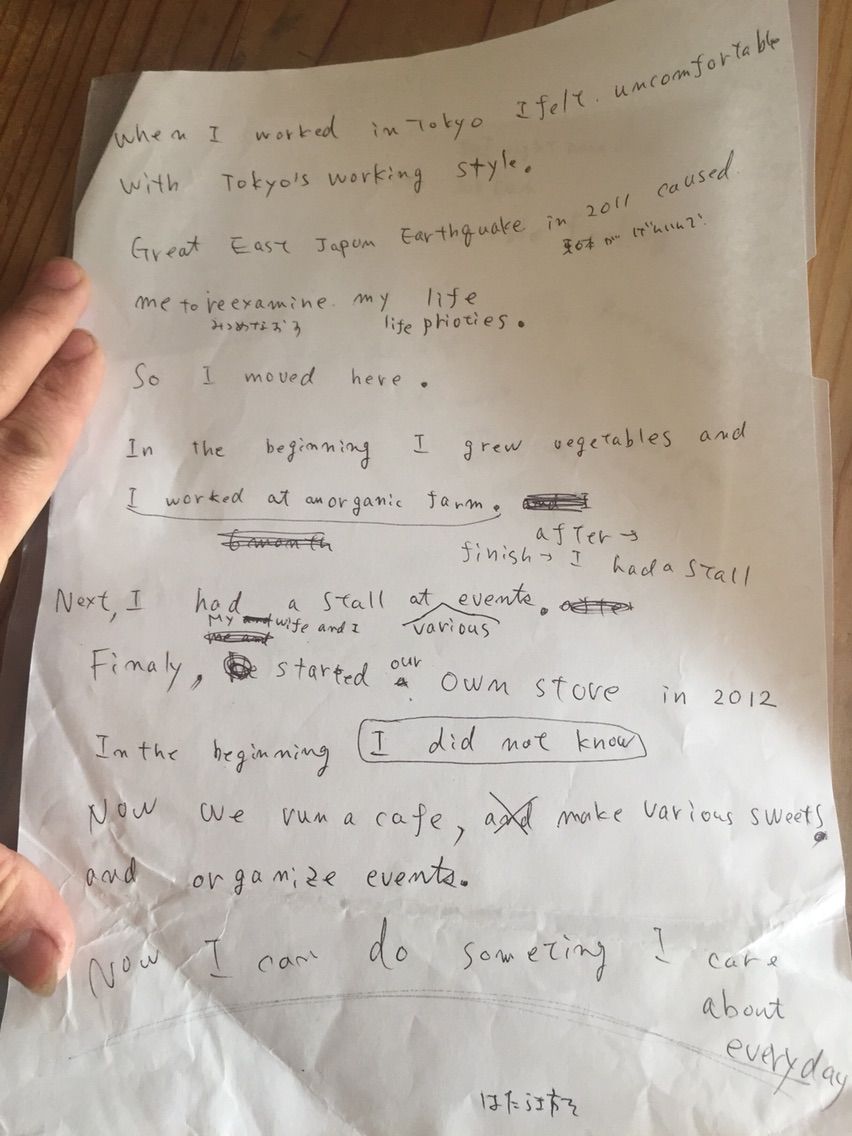 When I worked in Tokyo I felt uncomfortable
with Tokyo's working style.
Great East Japan Earthquake in 2011 caused
が げんいんで
me to reexamine my life
みつめなおす life prioties.
So I moved here.
In the beginning I grew vegetables and
I worked at an organic farm.
6 month
after →
finish → I had a stall
Next, I had a stall at events.
My wife and I various
Finaly, started our own store in 2012
In the beginning I did not know
Now we run a cafe, and make various sweets
and organize events.
Now I can do someting I care
about
everyday